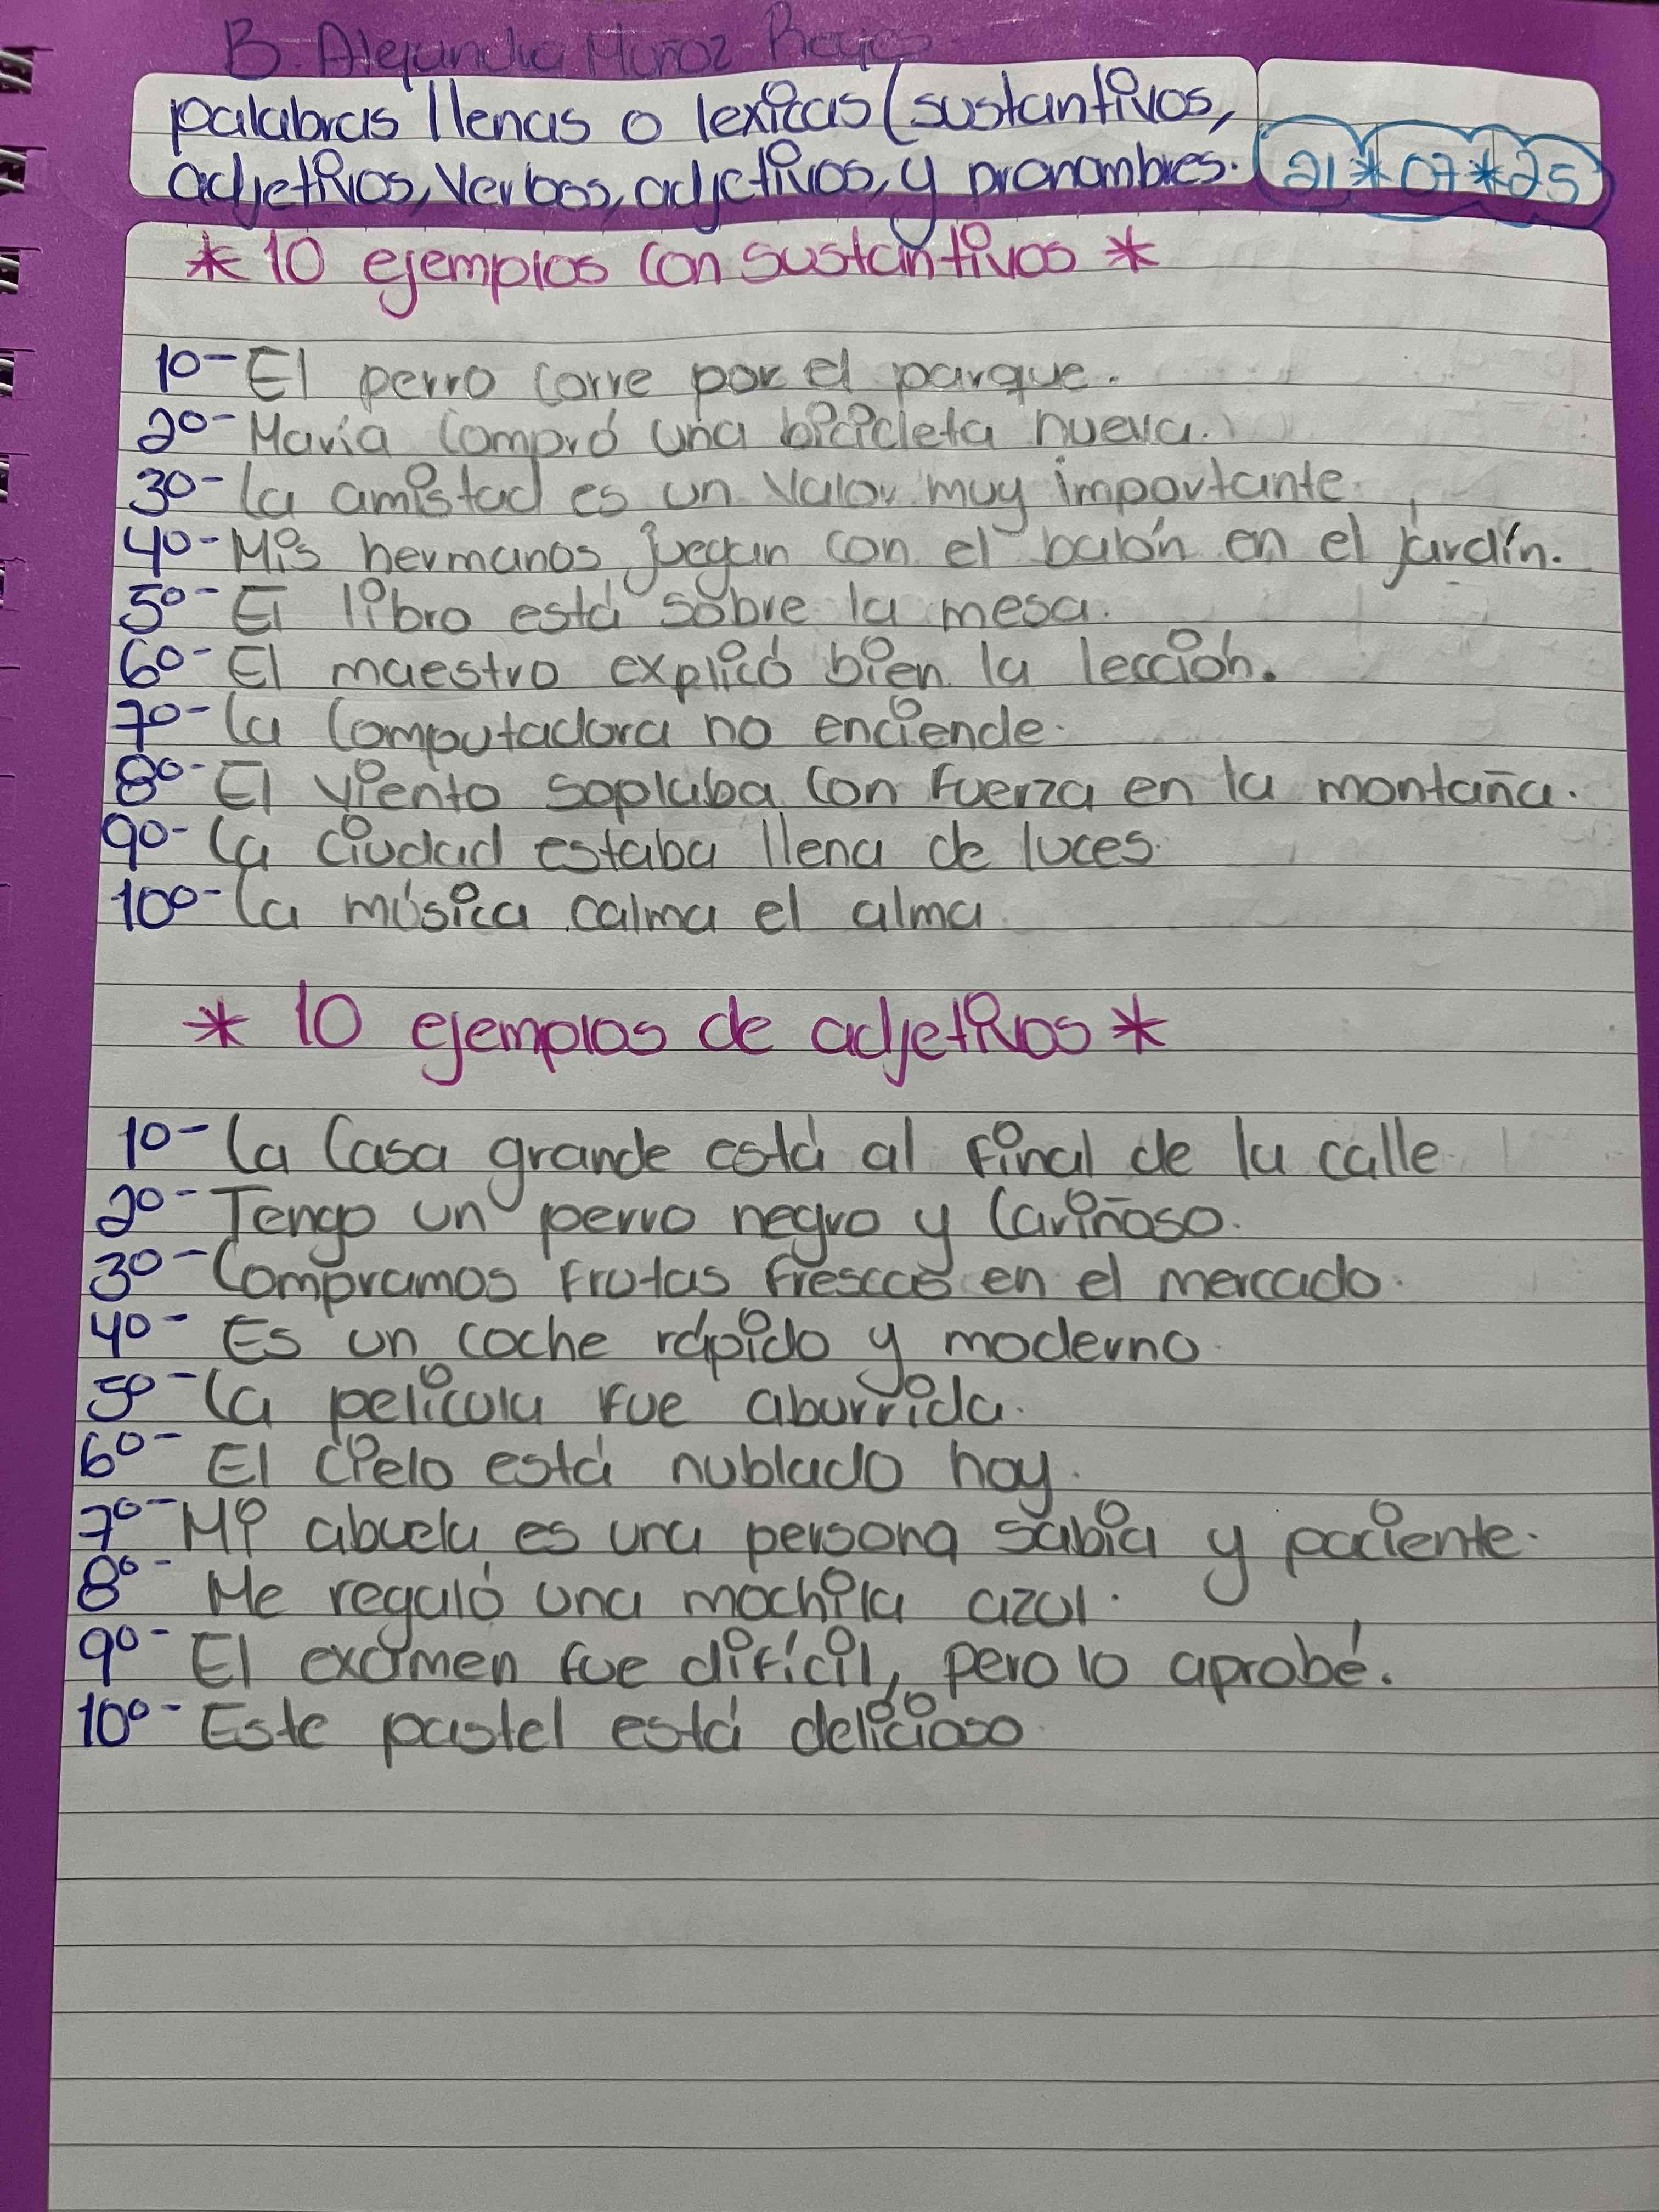 B. Alejandra Muñoz Reyes
palabras llenas o lexicas (sustantivos,
adjetivos, verbos, adjetivos, y pronombres.
21*07*25
*10 ejemplos con sustantivos*
1º- El perro corre por el parque.
2º- María compró una bicicleta nueva.
3º- La amistad es un valor muy importante.
4º- Mis hermanos juegan con el balón en el jardín.
5º- El libro está sobre la mesa.
6º- El maestro explicó bien la lección.
7º- La computadora no enciende.
8º- El viento soplaba con fuerza en la montaña.
9º- La ciudad estaba llena de luces.
10º- La música calma el alma
* 10 ejemplos de adjetivos *
1º- La casa grande está al final de la calle
2º- Tengo un perro negro y cariñoso.
3º- Compramos frutas frescas en el mercado.
4º- Es un coche rápido y moderno.
5º- La película fue aburrida.
6º- El cielo está nublado hoy.
7º- Mi abuela es una persona sabia y paciente.
8º- Me regaló una mochila azul.
9º- El exámen fue difícil, pero lo aprobé.
10º- Este pastel está delicioso